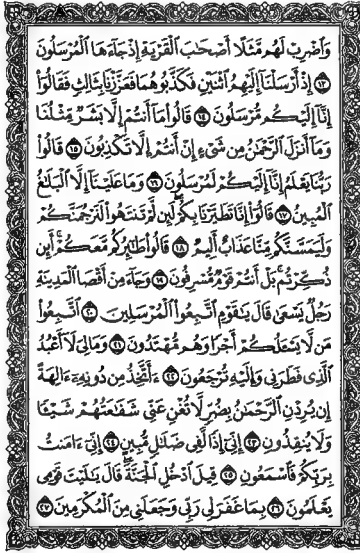 وَاضْرِبْ لَهُم مَّثَلًا أَصْحَٰبَ ٱلْقَرْيَةِ إِذْ جَآءَهَا ٱلْمُرْسَلُونَ
١٣ إِذْ أَرْسَلْنَآ إِلَيْهِمُ ٱثْنَيْنِ فَكَذَّبُوهُمَا فَعَزَّزْنَا بِثَالِثٍ فَقَالُوٓا۟
إِنَّآ إِلَيْكُم مُّرْسَلُونَ ١٤ قَالُوا۟ مَآ أَنتُمْ إِلَّا بَشَرٌ مِّثْلُنَا
وَمَآ أَنزَلَ ٱلرَّحْمَٰنُ مِن شَىْءٍ إِنْ أَنتُمْ إِلَّا تَكْذِبُونَ ١٥ قَالُوا۟
رَبُّنَا يَعْلَمُ إِنَّآ إِلَيْكُمْ لَمُرْسَلُونَ ١٦ وَمَا عَلَيْنَآ إِلَّا ٱلْبَلَٰغُ
ٱلْمُبِينُ ١٧ قَالُوٓا۟ إِنَّا تَطَيَّرْنَا بِكُمْ لَئِن لَّمْ تَنتَهُوا۟ لَنَرْجُمَنَّكُمْ
وَلَيَمَسَّنَّكُم مِّنَّا عَذَابٌ أَلِيمٌ ١٨ قَالُوا۟ طَٰٓئِرُكُم مَّعَكُمْ أَئِن
ذُكِّرْتُم بَلْ أَنتُمْ قَوْمٌ مُّسْرِفُونَ ١٩ وَجَآءَ مِنْ أَقْصَا ٱلْمَدِينَةِ
رَجُلٌ يَسْعَىٰ قَالَ يَٰقَوْمِ ٱتَّبِعُوا۟ ٱلْمُرْسَلِينَ ٢٠ ٱتَّبِعُوا۟
مَن لَّا يَسْـَٔلُكُمْ أَجْرًا وَهُم مُّهْتَدُونَ ٢١ وَمَالِىَ لَآ أَعْبُدُ
ٱلَّذِى فَطَرَنِى وَإِلَيْهِ تُرْجَعُونَ ٢٢ ءَأَتَّخِذُ مِن دُونِهِۦٓ ءَالِهَةً
إِن يُرِدْنِ ٱلرَّحْمَٰنُ بِضُرٍّ لَّا تُغْنِ عَنِّى شَفَٰعَتُهُمْ شَيْـًٔا
وَلَا يُنقِذُونِ ٢٣ إِنِّىٓ إِذًا لَّفِى ضَلَٰلٍ مُّبِينٍ ٢٤ إِنِّىٓ ءَامَنتُ
بِرَبِّكُمْ فَٱسْمَعُونِ ٢٥ قِيلَ ٱدْخُلِ ٱلْجَنَّةَ قَالَ يَٰلَيْتَ قَوْمِى
يَعْلَمُونَ ٢٦ بِمَا غَفَرَ لِى رَبِّى وَجَعَلَنِى مِنَ ٱلْمُكْرَمِينَ ٢٧